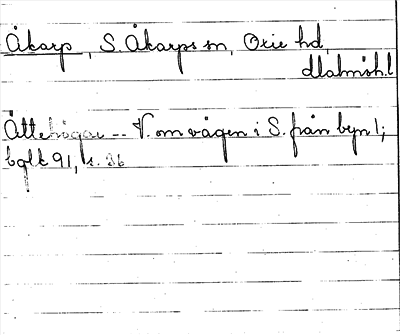 Åkarp, S. Åkarps sn, Oxie hd,
Malmöh. l
Ättehögar -- V. om vägen i S. från byn 1;
bglk 91, s. 36